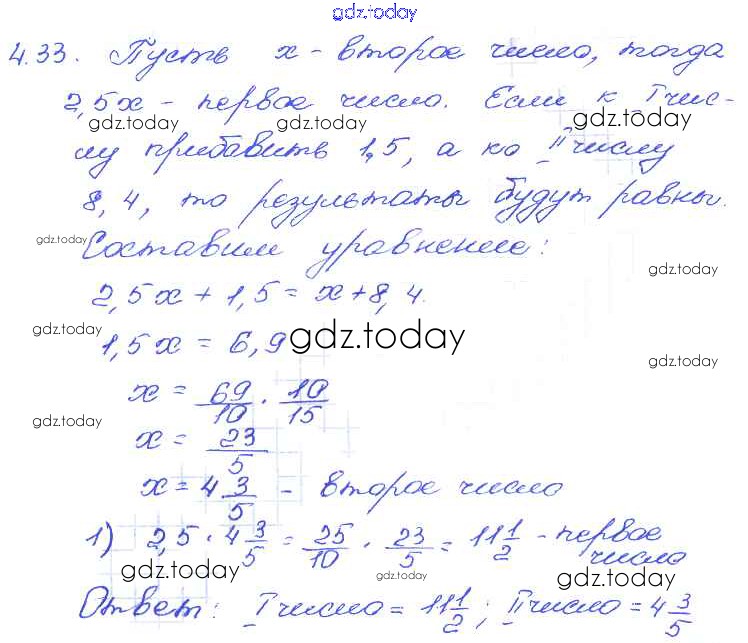 gdz.today
4.33. Пусть x - второе число, тогда
2,5x - первое число. Если к I чис-
gdz.today gdz.today gdz.today
лу прибавить 1,5, а ко II числу
8,4, то результаты будут равны.
gdz.today Составим уравнение:
gdz.today
2,5x + 1,5 = x + 8,4.
gdz.today
1,5x = 6,9 gdz.today
gdz.today
x = 69/10 · 10/15
gdz.today
x = 23/5
x = 4 3/5 - второе число
1) 2,5 · 4 3/5 = 25/10 · 23/5 = 11 1/2 - первое
число
gdz.today gdz.today gdz.today
Ответ: I число = 11 1/2; II число = 4 3/5